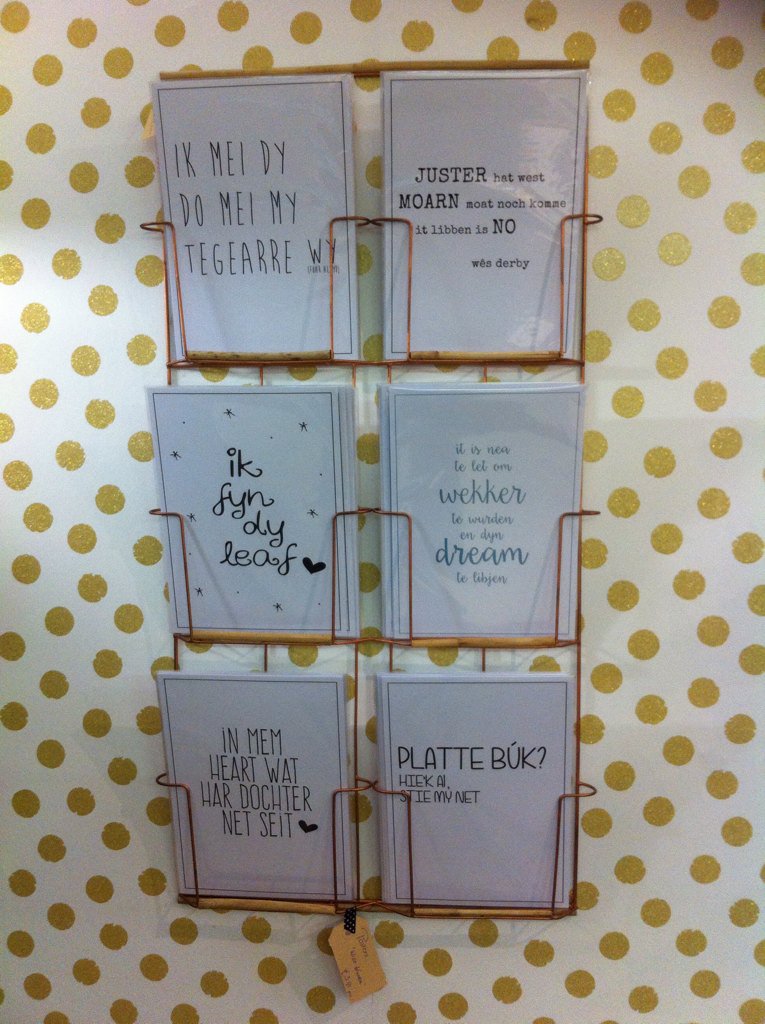 IK MEI DY
DO MEI MY
TEGEARRE WY
JUSTER hat west
MOARN moat noch komme
it libben is NO
wês derby
ik
fyn
dy
leaf
it is nea
te let om
wekker
te wurden
en dyn
dream
te libjen
IN MEM
HEART WAT
HAR DOCHTER
NET SEIT
PLATTE BÚK?
HIEK AL,
STIE MY NET